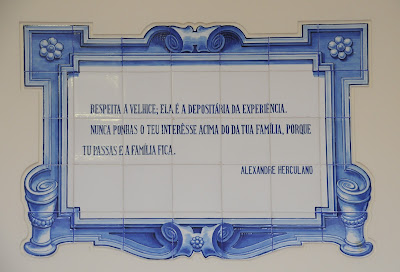 RESPEITA A VELHICE; ELA É A DEPOSITÁRIA DA EXPERIÊNCIA.
NUNCA PONHAS O TEU INTERÊSSE ACIMA DO DA TUA FAMÍLIA, PORQUE
TU PASSAS E A FAMÍLIA FICA.
ALEXANDRE HERCULANO